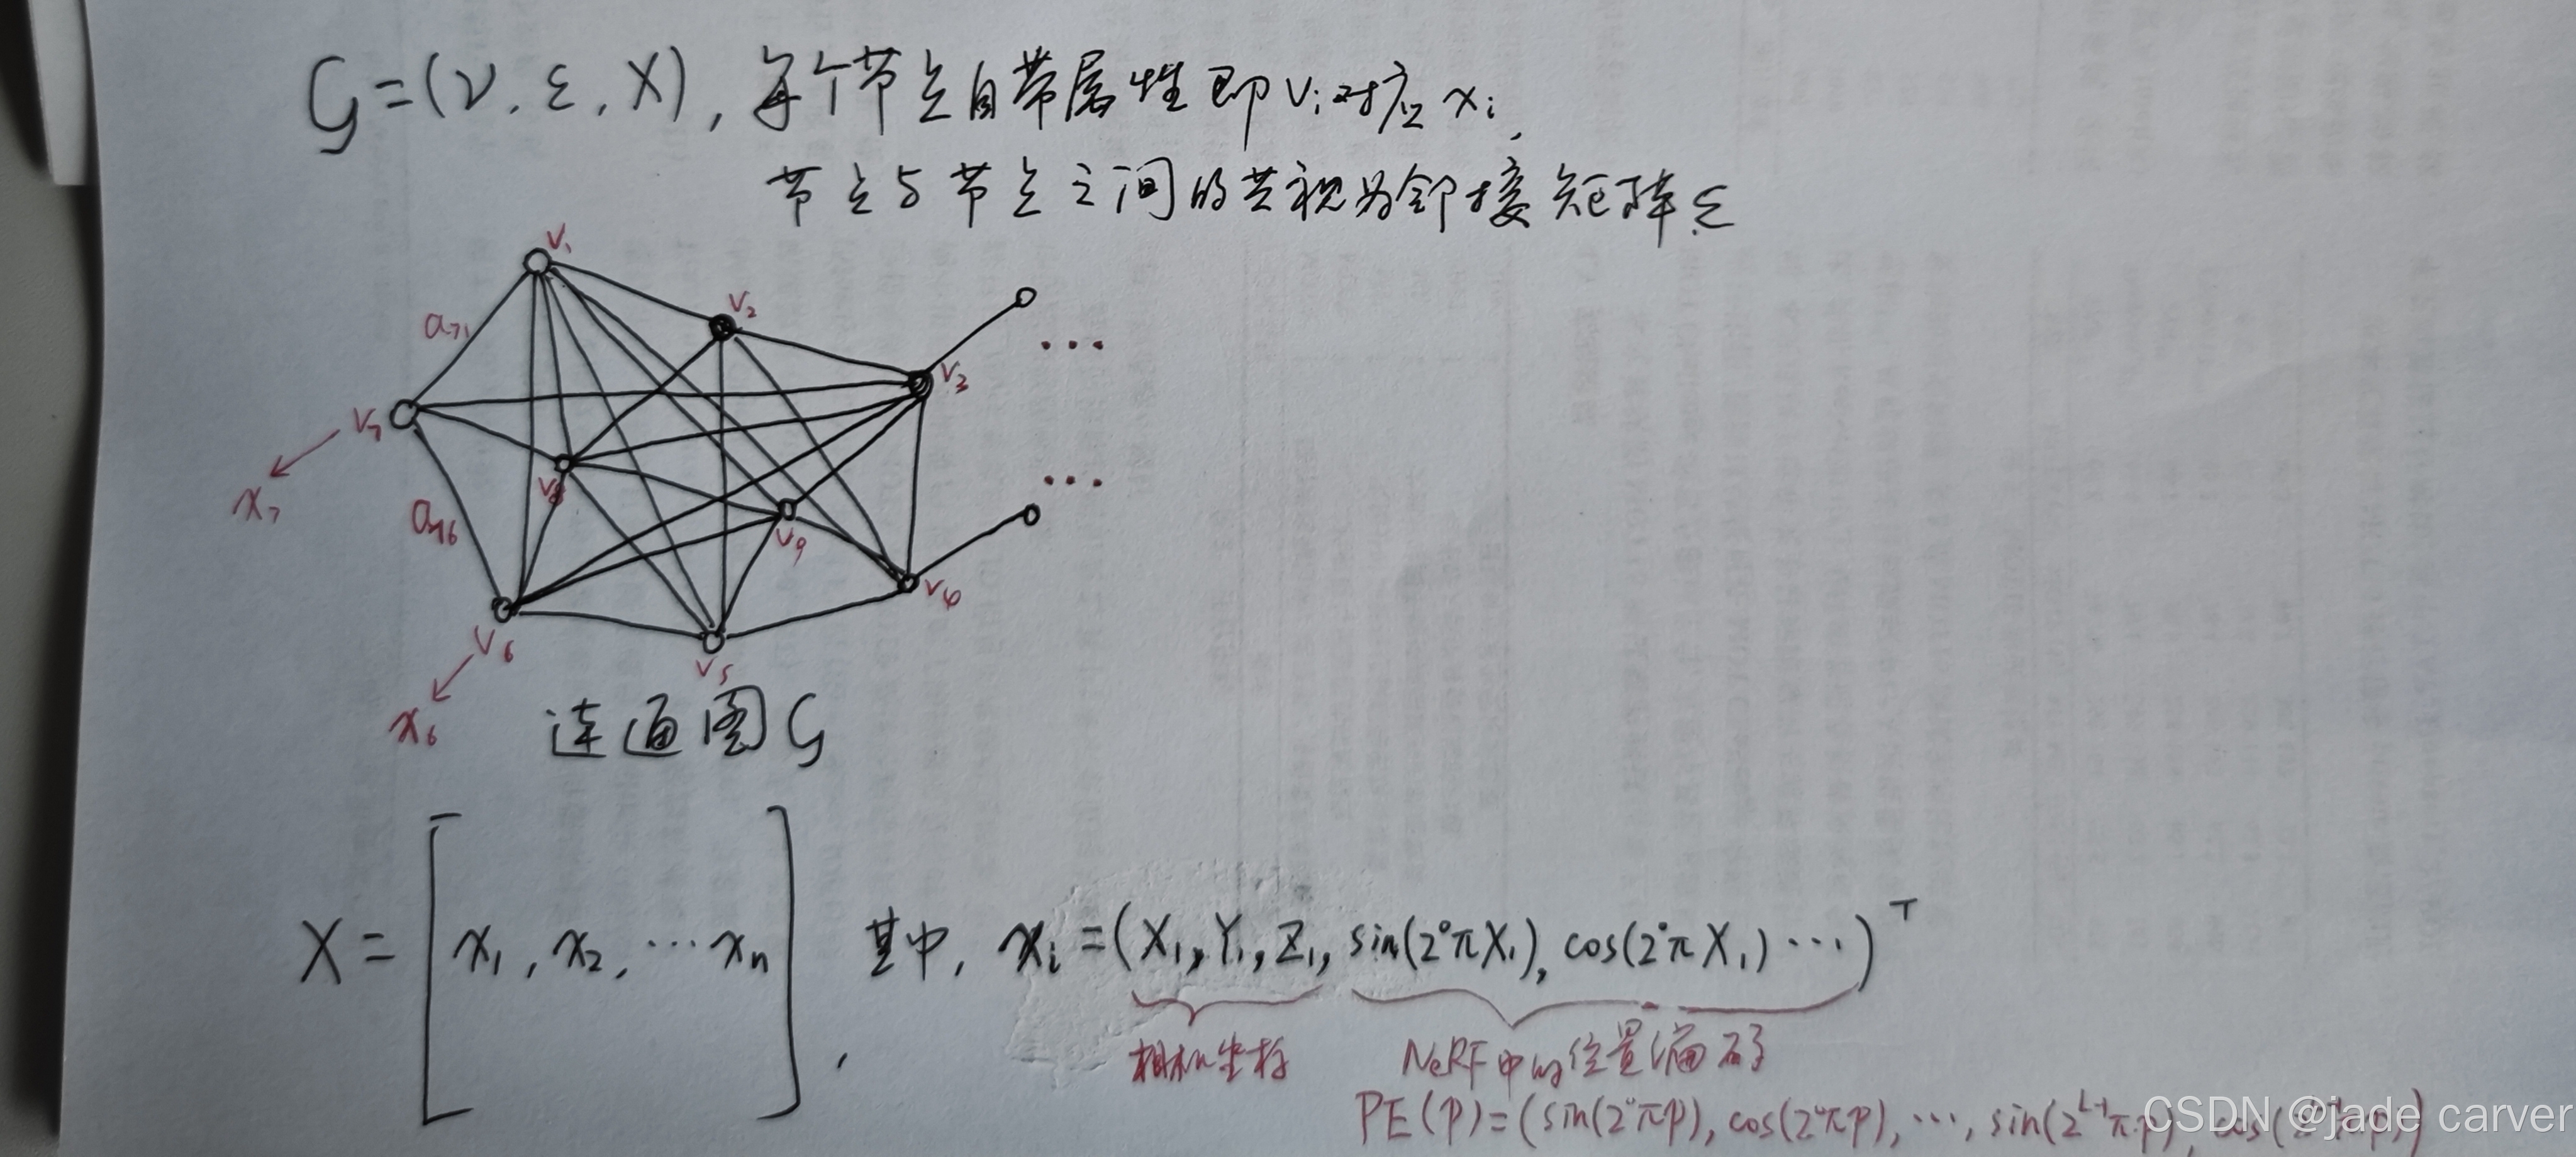 G=(ν, ε, X), 每个节点自带属性即 vᵢ对应 xᵢ,
节点与节点之间的共视为邻接矩阵 ε
v₁
v₂
a₇₁
...
v₃
v₇
x₇
v₈
...
a₇₆
v₉
v₄
v₆
v₅
x₆
连通图 G
X = [x₁, x₂, ⋯ xₙ], 其中, xᵢ = (X₁, Y₁, Z₁, sin(2⁰πX₁), cos(2⁰πX₁) ⋯)ᵀ
相机坐标 NeRF中的位置编码
PE(p)=(sin(2⁰πp), cos(2⁰πp), ⋯, sin(2ᴸ⁻¹πp), cos(
CSDN @jade carver